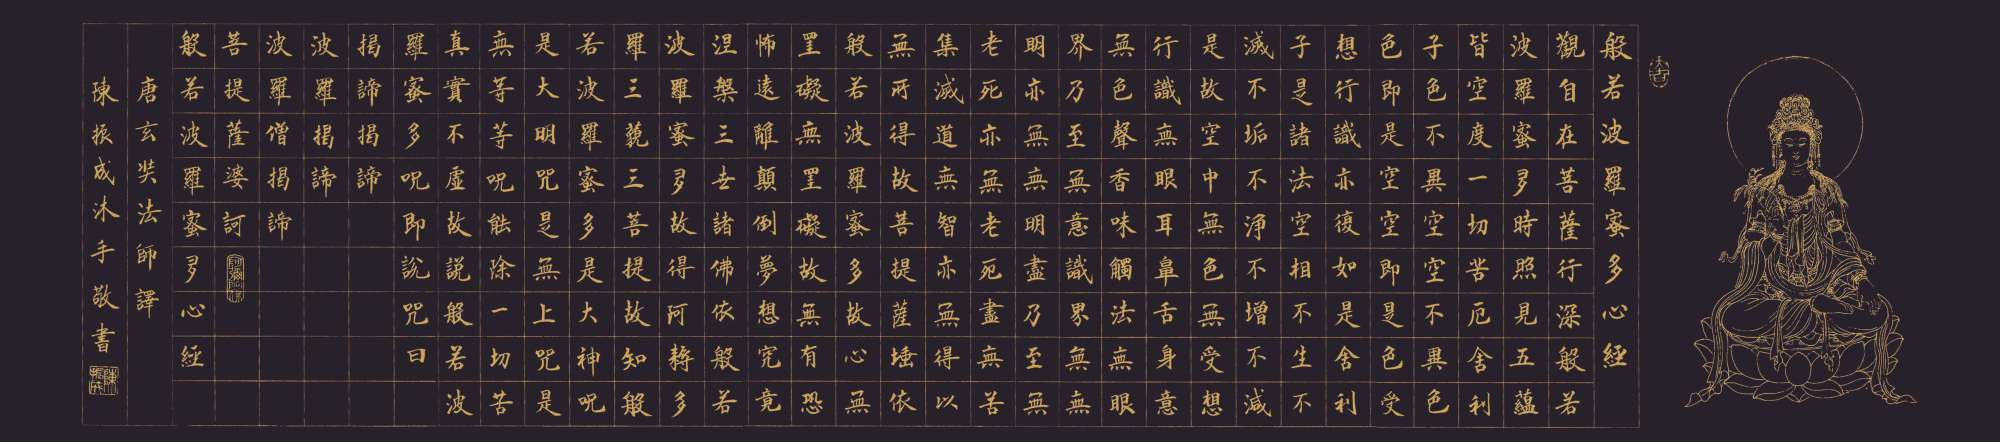 般若波羅蜜多心經
觀自在菩薩行深般若
波羅蜜多時照見五蘊
皆空度一切苦厄舍利
子色不異空空不異色
色即是空空即是色受
想行識亦復如是舍利
子是諸法空相不生不
滅不垢不淨不增不減
是故空中無色無受想
行識無眼耳鼻舌身意
無色聲香味觸法無眼
界乃至無意識界無無
明亦無無明盡乃至無
老死亦無老死盡無苦
集滅道無智亦無得以
無所得故菩提薩埵依
般若波羅蜜多故心無
罣礙無罣礙故無有恐
怖遠離顛倒夢想究竟
涅槃三世諸佛依般若
波羅蜜多故得阿耨多
羅三藐三菩提故知般
若波羅蜜多是大神咒
是大明咒是無上咒是
無等等咒能除一切苦
真實不虛故說般若波
羅蜜多咒即說咒曰
揭諦揭諦
波羅揭諦
波羅僧揭諦
菩提薩婆訶
般若波羅蜜多心經
唐玄奘法師譯
陳振成沐手敬書